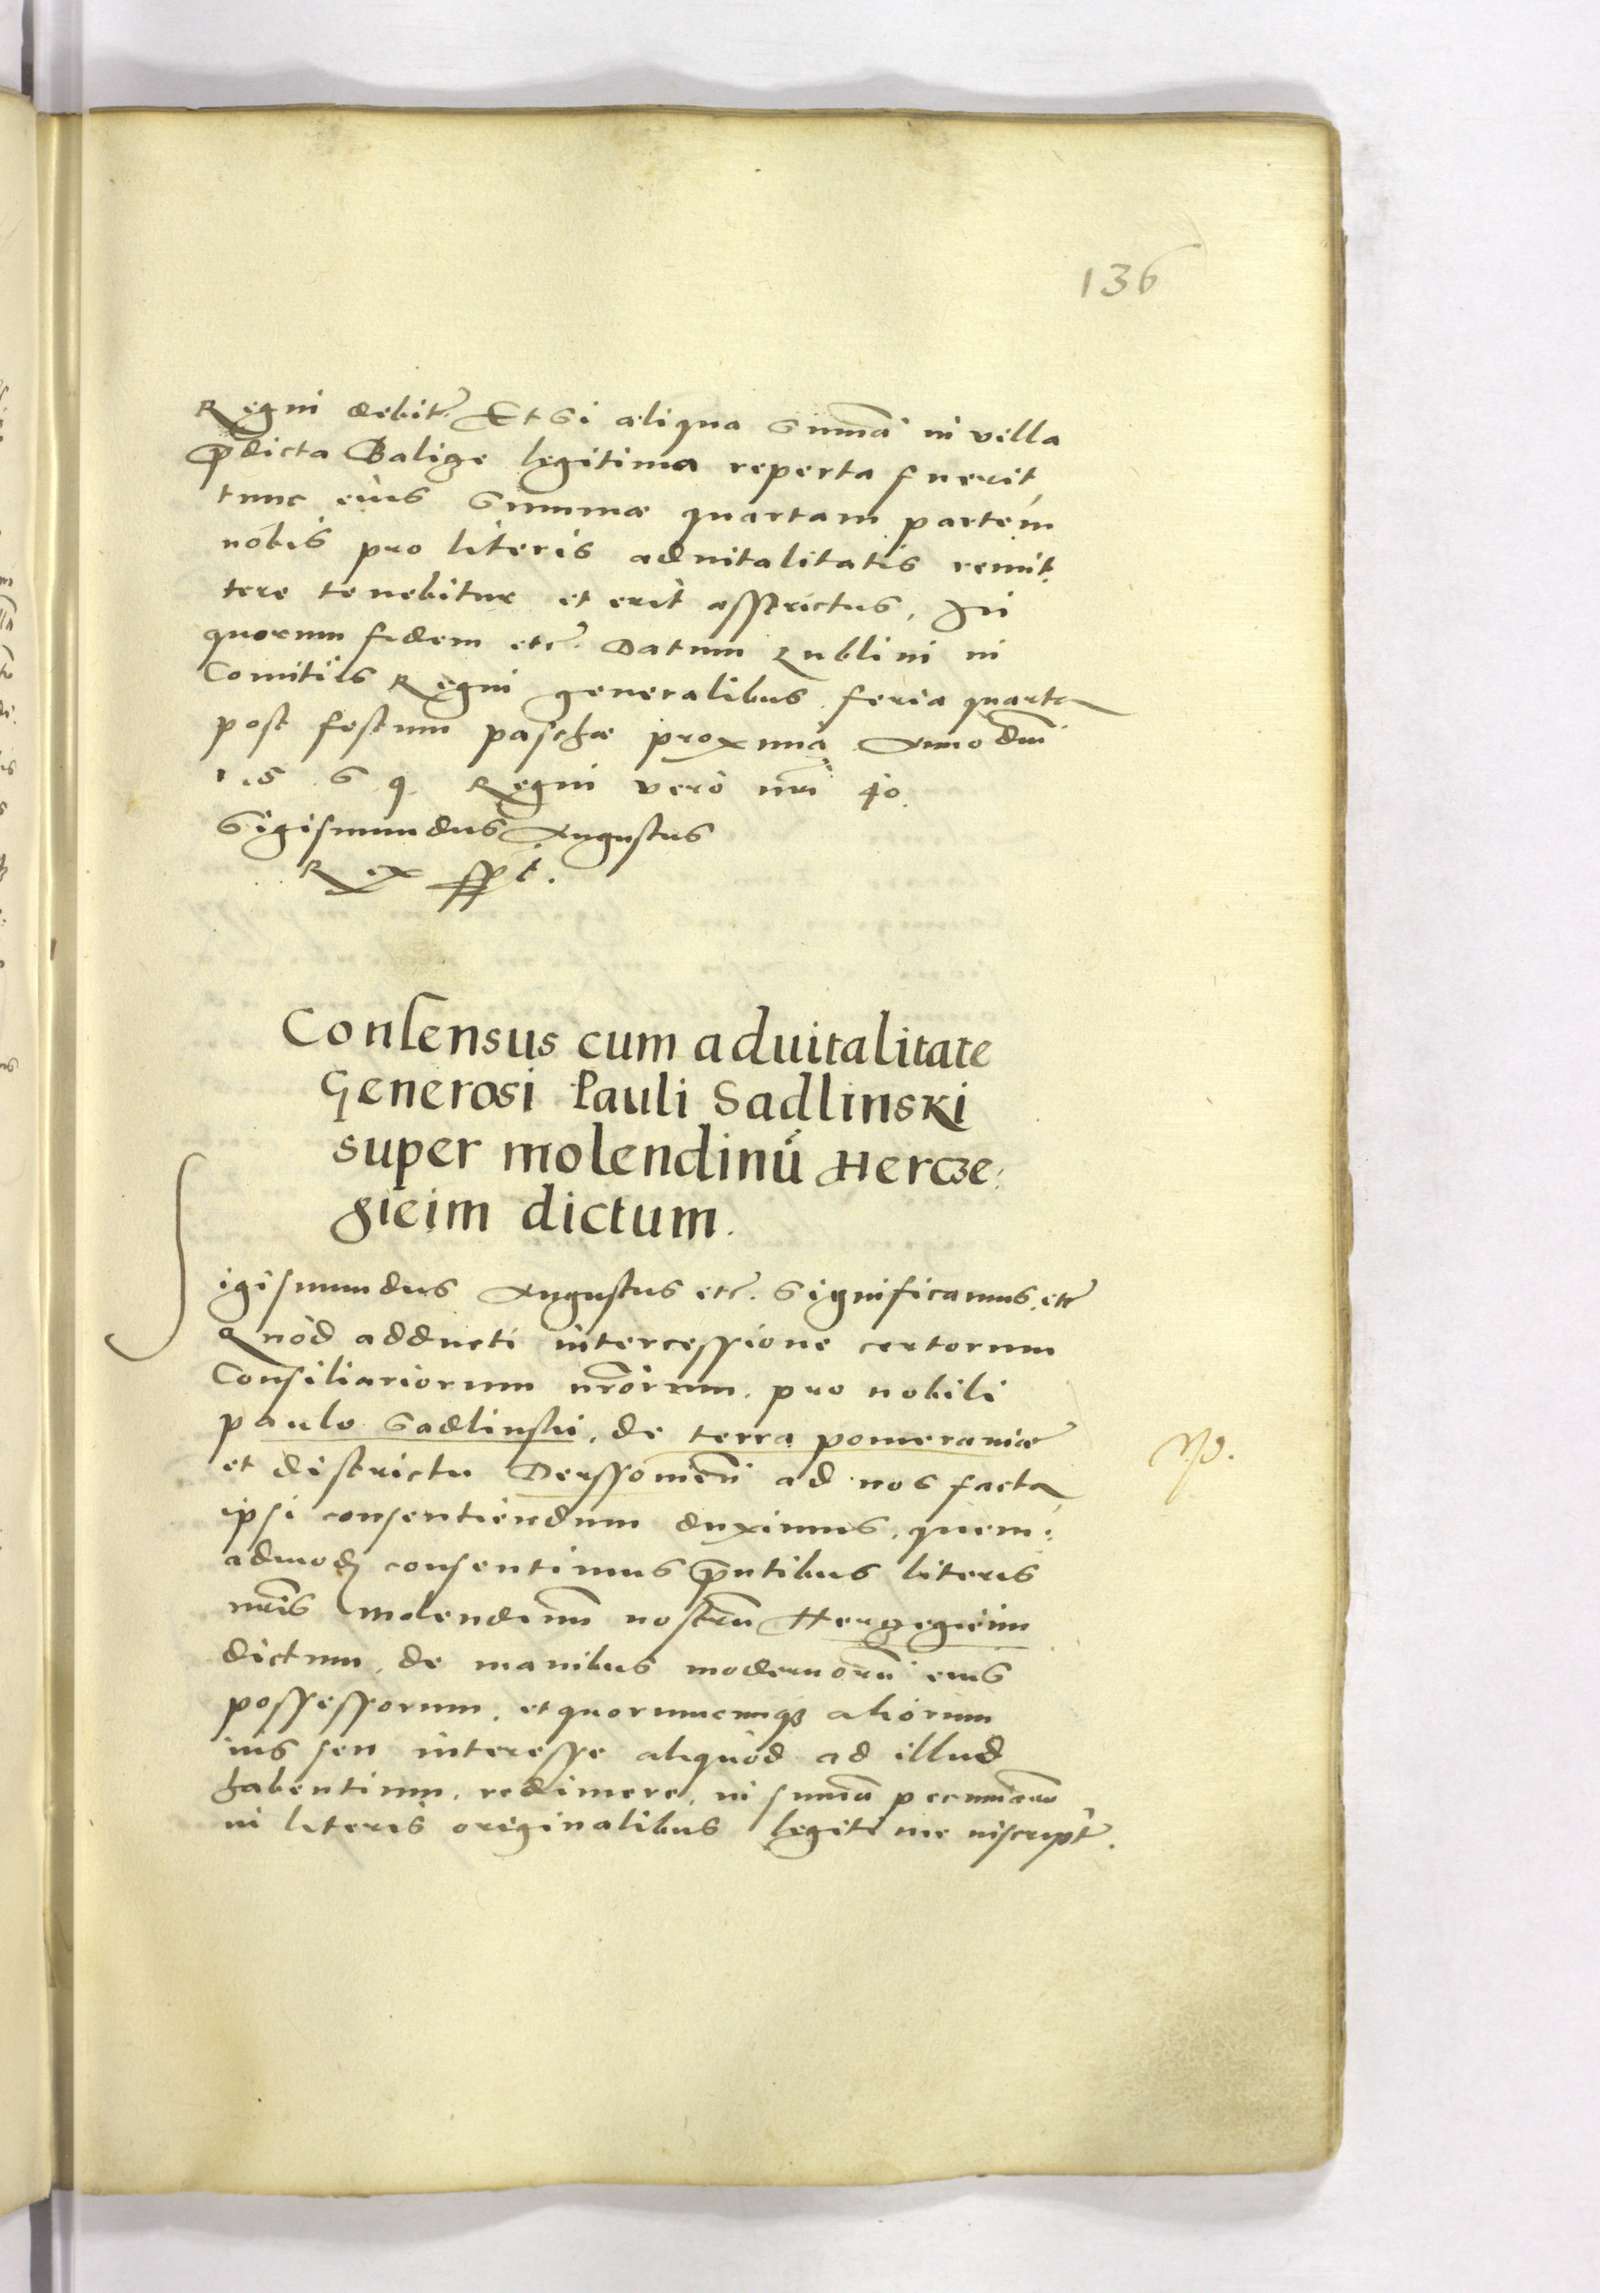 136
Regni debit. Et si aliqua summa in villa
p̄dicta Balige legitima reperta fuerit,
tunc eius summæ quartam partem
nobis pro literis aduitalitatis remit:
tere tenebitur et erit asstrictus. In
quorum fidem etc. Datum Lublini in
Comitiis Regni generalibus feria quarta
post festum paschæ proxima Anno dni
1.5 6 9. Regni vero nrī 40.
Sigismundus Augustus
Rex sspt.
Consensus cum aduitalitate
Generosi Pauli Sadlinski
super molendinū Hercze:
gieim dictum.
Sigismundus Augustus etc. Significamus etc
Quod adducti intercessione certorum
Consiliariorum nrōrum pro nobili
paulo Sadlinski, de terra pomeraniæ
et districtu Derssouien̄ ad nos facta
ipsi consentiendum duximus, quem:
admod consentimus p̄ntibus literis
nrīs Molendinū nostrū Hergegieim
dictum, de manibus modernorū eius
possessorum, et quorumcunq aliorum
ius seu interesse aliquod ad illud
habentium, redimere, in summa pecuniarū
in literis originalibus legitime inscript.